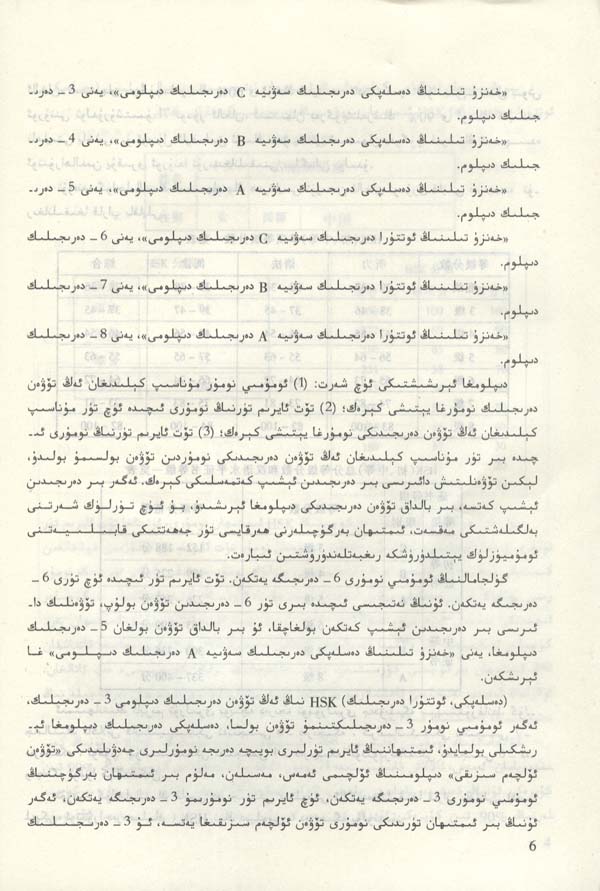 «خەنزۇ تىلىنىڭ دەسلەپكى دەرىجىلىك سەۋىيە C دەرىجىلىك دىپلومى»، يەنى 3 ـ دەرى-
جىلىك دىپلوم.
«خەنزۇ تىلىنىڭ دەسلەپكى دەرىجىلىك سەۋىيە B دەرىجىلىك دىپلومى»، يەنى 4 ـ دەرى-
جىلىك دىپلوم.
«خەنزۇ تىلىنىڭ دەسلەپكى دەرىجىلىك سەۋىيە A دەرىجىلىك دىپلومى»، يەنى 5 ـ دەرى-
جىلىك دىپلوم.
«خەنزۇ تىلىنىڭ ئوتتۇرا دەرىجىلىك سەۋىيە C دەرىجىلىك دىپلومى»، يەنى 6 ـ دەرىجىلىك
دىپلوم.
«خەنزۇ تىلىنىڭ ئوتتۇرا دەرىجىلىك سەۋىيە B دەرىجىلىك دىپلومى»، يەنى 7 ـ دەرىجىلىك
دىپلوم.
«خەنزۇ تىلىنىڭ ئوتتۇرا دەرىجىلىك سەۋىيە A دەرىجىلىك دىپلومى»، يەنى 8 ـ دەرىجىلىك
دىپلوم.
دىپلومغا ئېرىشىشتىكى ئۈچ شەرت: (1) ئومۇمىي نومۇر مۇناسىپ كېلىدىغان ئەڭ تۆۋەن
دەرىجىلىك نومۇرغا يېتىشى كېرەك؛ (2) تۆت ئايرىم تۈرنىڭ نومۇرى ئىچىدە ئۈچ تۈر مۇناسىپ
كېلىدىغان ئەڭ تۆۋەن دەرىجىدىكى نومۇرغا يېتىشى كېرەك؛ (3) تۆت ئايرىم تۈرنىڭ نومۇرى ئى-
چىدە بىر تۈر مۇناسىپ كېلىدىغان ئەڭ تۆۋەن دەرىجىدىكى نومۇردىن تۆۋەن بولسىمۇ بولىدۇ،
لېكىن تۆۋەنلىتىش دائىرىسى بىر دەرىجىدىن ئېشىپ كەتمەسلىكى كېرەك. ئەگەر بىر دەرىجىدىن
ئېشىپ كەتسە، بىر بالداق تۆۋەن دەرىجىدىكى دىپلومغا ئېرىشىدۇ، بۇ ئۈچ تۈرلۈك شەرتنى
بەلگىلەشتىكى مەقسەت، ئىمتىھان بەرگۈچىلەرنى ھەرقايسى تۈر جەھەتتىكى قابىلىيەتنى
ئومۇميۈزلۈك يېتىلدۈرۈشكە رىغبەتلەندۈرۈشتىن ئىبارەت.
گۈلجامالنىڭ ئومۇمىي نومۇرى 6 ـ دەرىجىگە يەتكەن. تۆت ئايرىم تۈر ئىچىدە ئۈچ تۈرى 6 ـ
دەرىجىگە يەتكەن. ئۇنىڭ نەتىجىسى ئىچىدە بىرى تۈر 6 ـ دەرىجىدىن تۆۋەن بولۇپ، تۆۋەنلىك دا-
ئىرىسى بىر دەرىجىدىن ئېشىپ كەتكەن بولغاچقا، ئۇ بىر بالداق تۆۋەن بولغان 5 ـ دەرىجىلىك
دىپلومغا، يەنى «خەنزۇ تىلىنىڭ دەسلەپكى دەرىجىلىك سەۋىيە A دەرىجىلىك دىپلومى» غا
ئېرىشكەن.
(دەسلەپكى، ئوتتۇرا دەرىجىلىك) HSK نىڭ ئەڭ تۆۋەن دەرىجىلىك دىپلومى 3 ـ دەرىجىلىك،
ئەگەر ئومۇمىي نومۇر 3 ـ دەرىجىلىكتىنمۇ تۆۋەن بولسا، دەسلەپكى دەرىجىلىك دىپلومغا ئې-
رىشكىلى بولمايدۇ، ئىمتىھاننىڭ ئايرىم تۈرلىرى بويىچە دەرىجە نومۇرلىرى جەدۋىلىدىكى «تۆۋەن
ئۆلچەم سىزىقى» دىپلومنىڭ ئۆلچىمى ئەمەس، مەسىلەن، مەلۇم بىر ئىمتىھان بەرگۈچىنىڭ
ئومۇمىي نومۇرى 3 ـ دەرىجىگە يەتكەن، ئۈچ ئايرىم تۈر نومۇرىمۇ 3 ـ دەرىجىگە يەتكەن، ئەگەر
ئۇنىڭ بىر ئىمتىھان تۈرىدىكى نومۇرى تۆۋەن ئۆلچەم سىزىقىغا يەتسە، ئۇ 3 ـ دەرىجىلىك
6